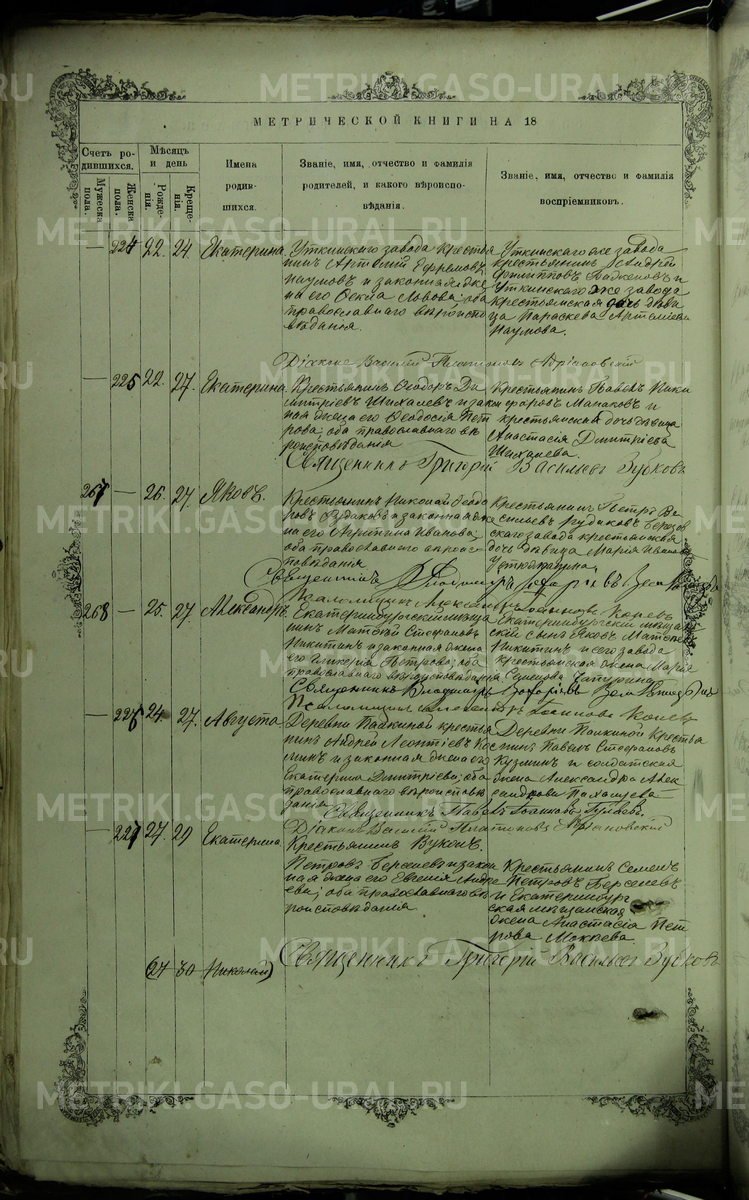 МЕТРИЧЕСКОЙ КНИГИ НА 18
Счетъ ро-
дившихся.
Мужеска
пола.
Женска
пола.
Мѣсяцъ
и день
Рожде-
нія.
Креще-
нія.
Имена
родив-
шихся.
Званіе, имя, отчество и фамилія
родителей, и какого вѣроиспо-
вѣданія.
Званіе, имя, отчество и фамилія
воспріемниковъ.
— 224 22. 24. Екатерина.
Уткинскаго завода крестья
нинъ Артемій Ефремовъ
Наумовъ и законная же
на его Фекла Львова; оба
православнаго вѣроиспо
вѣданія.
Уткинскаго же завода
крестьянинъ Андрей
Филипповъ и
Уткинскаго же завода
крестьянская дочь дѣви
ца Параскева Артеміева
Наумова.
Діаконъ Василій Платоновъ
— 225 22. 27. Екатерина.
Крестьянинъ Ѳеодоръ Ди
митріевъ Шихалевъ и закон
ная жена его Ѳеодосія Пет
рова; оба православнаго вѣ
роисповѣданія
Крестьянинъ Павелъ Ники
форовъ Манаковъ и
крестьянская дочь дѣвица
Анастасія Дмитріева
Шихалева.
Священникъ Григорій Васильевъ Зубковъ
267 — 26. 27. Яковъ.
Крестьянинъ Николай
и законная же
на его Иванова
оба православнаго вѣроис
повѣданія
Крестьянинъ Петръ Ва
сильевъ Рудаковъ Березов
скаго завода крестьянская
дочь дѣвица Марія Иванова
Священникъ Владиміръ
Псаломщикъ Александръ
268 — 25. 27. Александръ.
Екатеринбургскій мѣща
нинъ Матвѣй Стефановъ
Никитинъ и законная жена
его Гликерія Петрова; оба
православнаго вѣроисповѣданія
Екатеринбургскій мѣщан
скій сынъ Яковъ Матвѣевъ
Никитинъ и сего завода
крестьянская жена Марія
Семенова
Священникъ Владиміръ
Псаломщикъ Александръ
— 226 24. 27. Августа.
Деревни Палкиной крестья
нинъ Андрей Леонтіевъ
и законная жена его
Екатерина Димитріева; оба
православнаго вѣроисповѣ
данія
Деревни Палкиной кресть
янинъ Павелъ Стефановъ
Кузминъ и солдатская
жена Александра Алек
сандрова
Священникъ Павелъ Іоанновъ
Діаконъ Василій Платоновъ
— 227 27. 29 Екатерина
Крестьянинъ Вуколъ
Петровъ Берсеневъ и закон
ная жена его Евгенія Андре
ева; оба православнаго вѣ
роисповѣданія
Крестьянинъ Семенъ
Петровъ Берсеневъ
и Екатеринбург
ская мѣщанская
жена Анастасія Пет
рова Мокѣева
Священникъ Григорій Васильевъ Зубковъ
(27 30 Николай)
METRIKI.GASO-URAL.RU